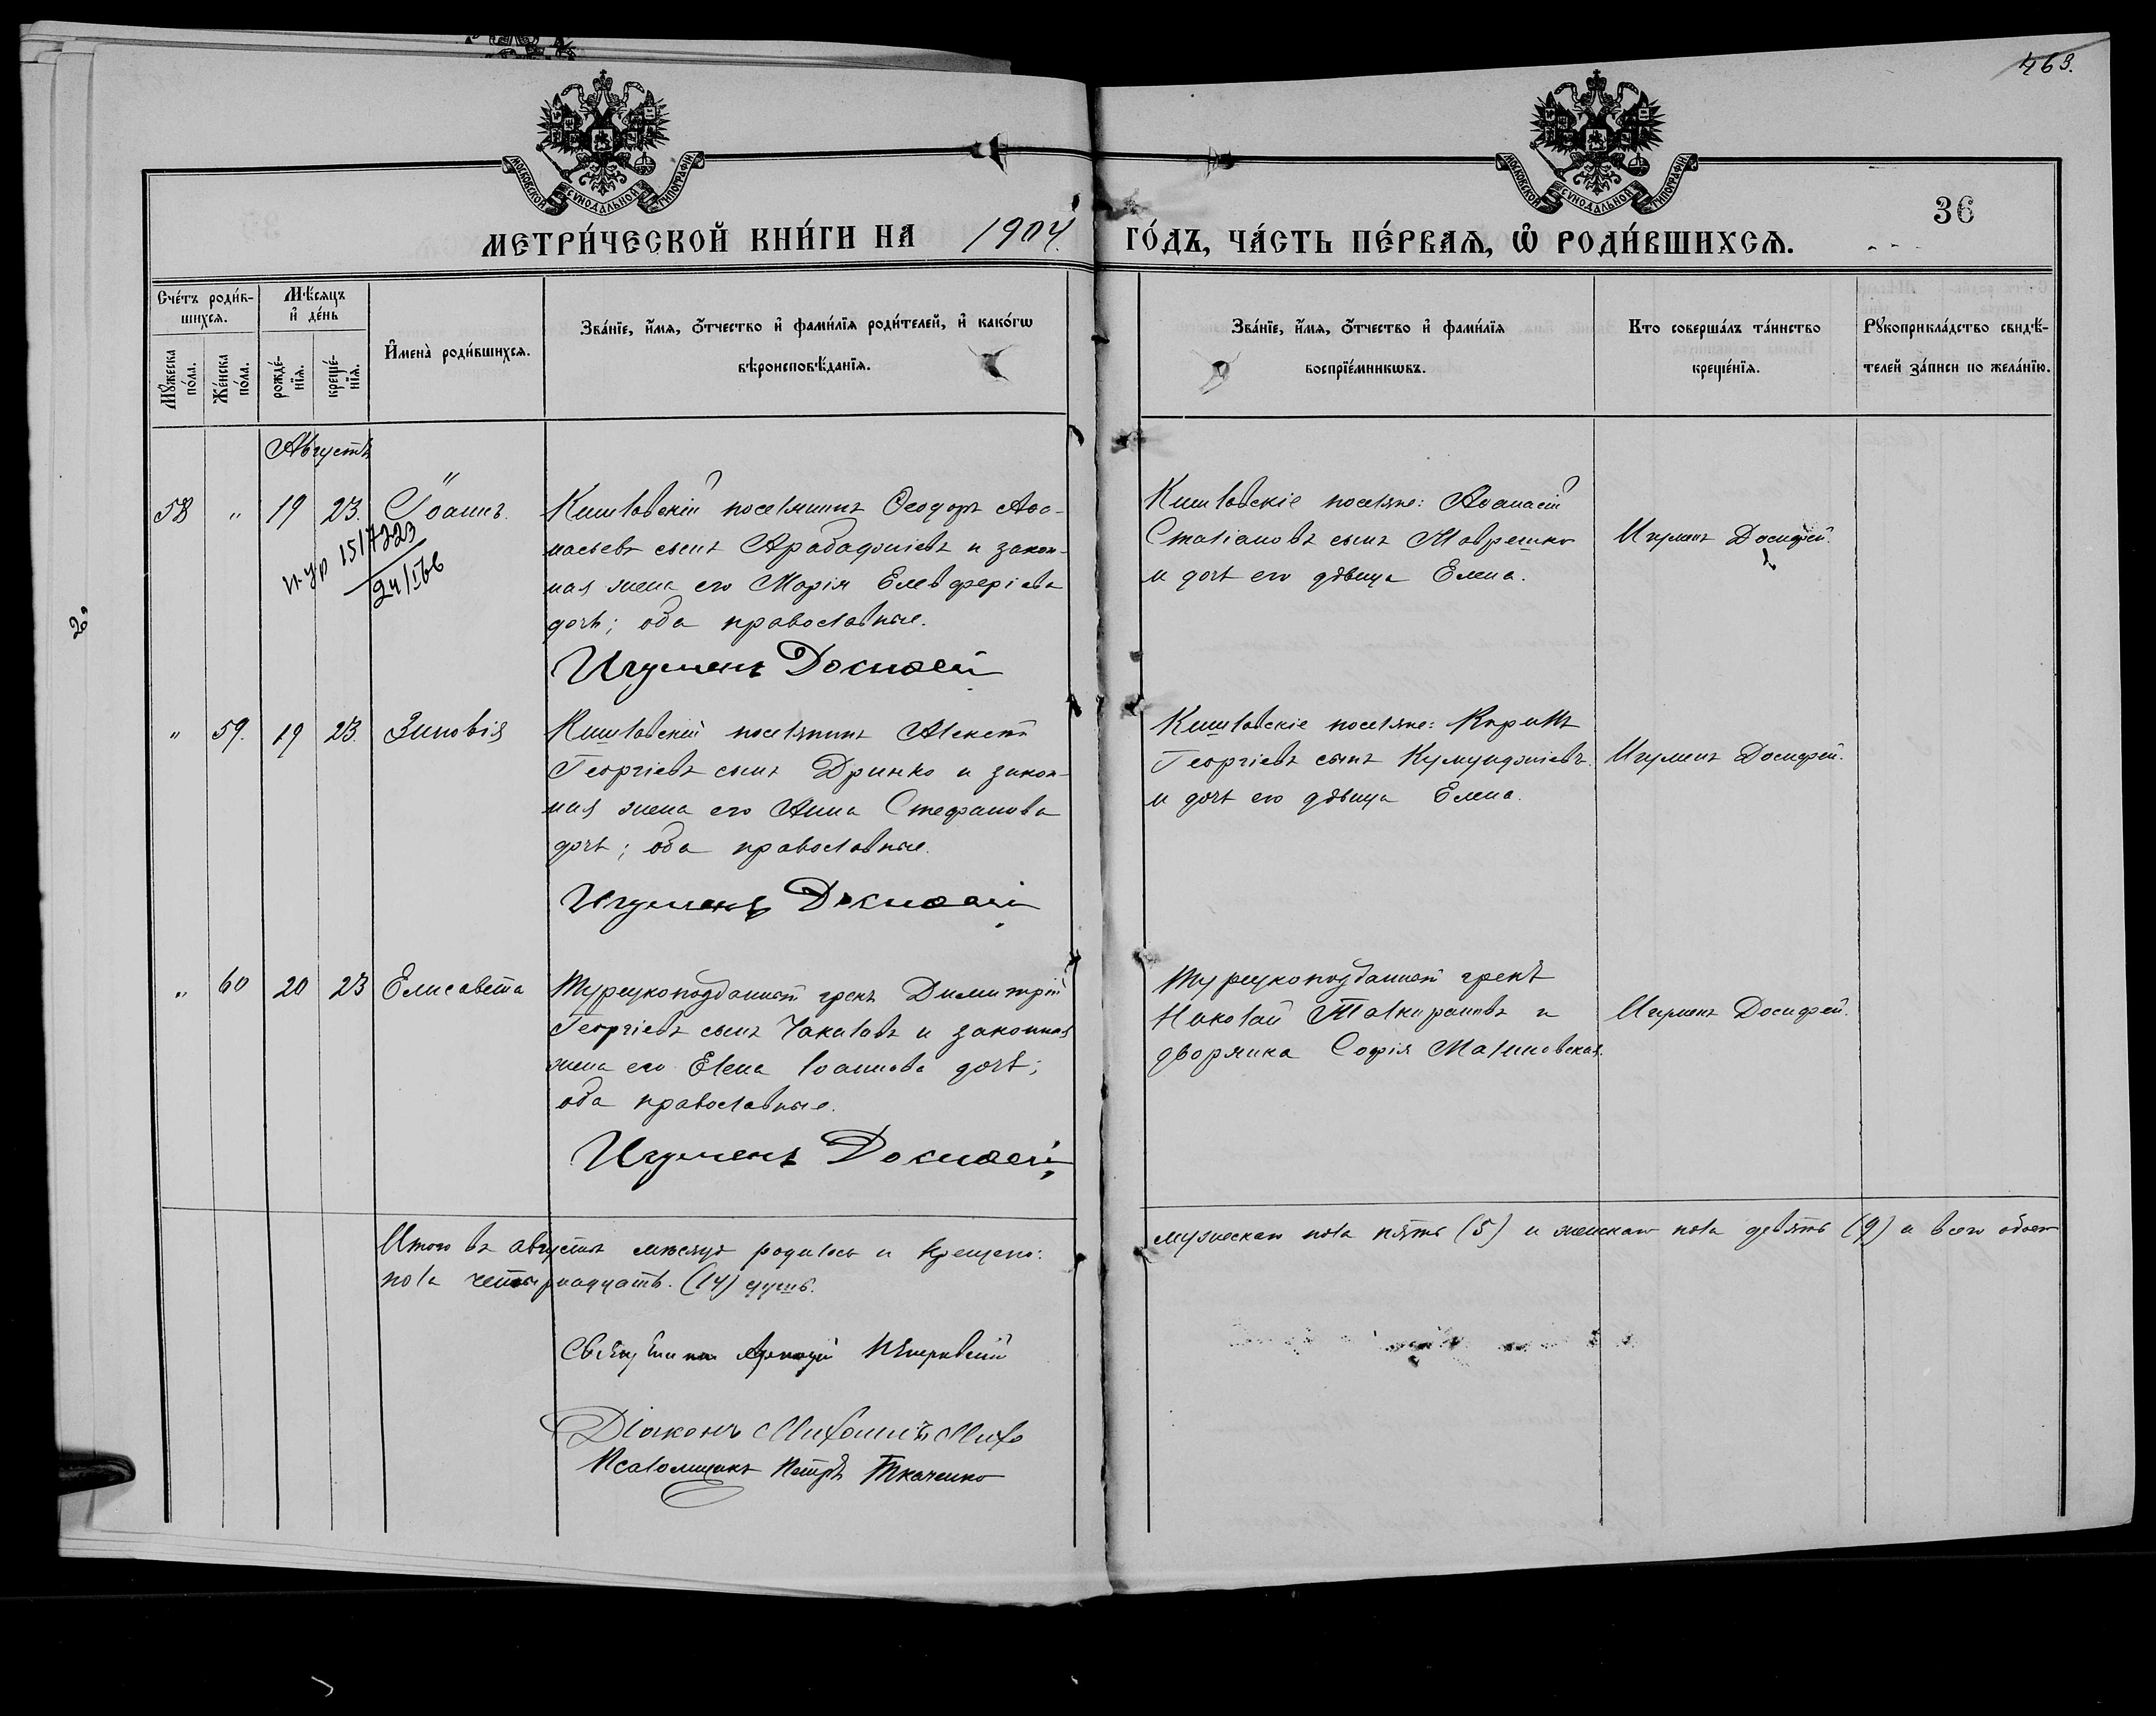 463.
МОСКОВСКОЙ СУНОДАЛЬНОЙ ТИПОГРАФІИ
МОСКОВСКОЙ СУНОДАЛЬНОЙ ТИПОГРАФІИ
36
МЕТРИ́ЧЕСКОЙ КНИ́ГИ НА 1904. ГО́ДЪ, ЧА́СТЬ ПЕ́РВАѦ, Ѡ҆ РОДИ́ВШИХСѦ.
Сче́тъ роди́в-
шихсѧ.
Мꙋ́жеска по́ла.
Же́нска по́ла.
Мѣ́сѧцъ
и҆ де́нь
рожде́-
нїѧ.
креще́-
нїѧ.
И҆мена̀ роди́вшихсѧ.
Зва́нїе, и҆́мѧ, ѻ҆́тчество и҆ фами́лїѧ роди́телей, и҆ како́гѡ
вѣроисповѣ́данїѧ.
Зва́нїе, и҆́мѧ, ѻ҆́тчество и҆ фами́лїѧ
воспрїе́мникѡвъ.
Кто соверша́лъ та́инство
креще́нїѧ.
Рꙋкоприкла́дство свидѣ́-
телей за́писи по жела́нїю.
Августъ
58 " 19 23. Іоаннъ.
Кишловскій поселянинъ Ѳеодоръ Аѳа-
насьевъ сынъ Арабаджіевъ и закон-
ная жена его Марія Елевферіева
дочь; оба православные.
Игуменъ Досиѳей
Кишловскіе поселяне: Аѳанасій
Сталіановъ сынъ Маврешко
и дочь его дѣвица Елена.
Игуменъ Досиѳей.
" 59. 19 23. Зиновія
Кишловскій поселянинъ Алексѣй
Георгіевъ сынъ Дринко и закон-
ная жена его Анна Стефанова
дочь; оба православные.
Игуменъ Досиѳей
Кишловскіе поселяне: Кириллъ
Георгіевъ сынъ Куюнджіевъ
и дочь его дѣвица Елена.
Игуменъ Досиѳей.
" 60 20 23 Елисавета
Турецкоподданный грекъ Димитрій
Георгіевъ сынъ Чакаловъ и законная
жена его Елена Іоаннова дочь;
оба православные.
Игуменъ Досиѳей
Турецкоподданный грекъ
Николай и
дворянка Софія Малиновская.
Игуменъ Досиѳей.
Итого въ августѣ мѣсяцѣ родилось и крещено: мужескаго пола пять (5) и женскаго пола девять (9) а всего обоего
пола четырнадцать. (14) душъ.
Священникъ
Діаконъ Михаилъ
Псаломщикъ Петръ Ткаченко